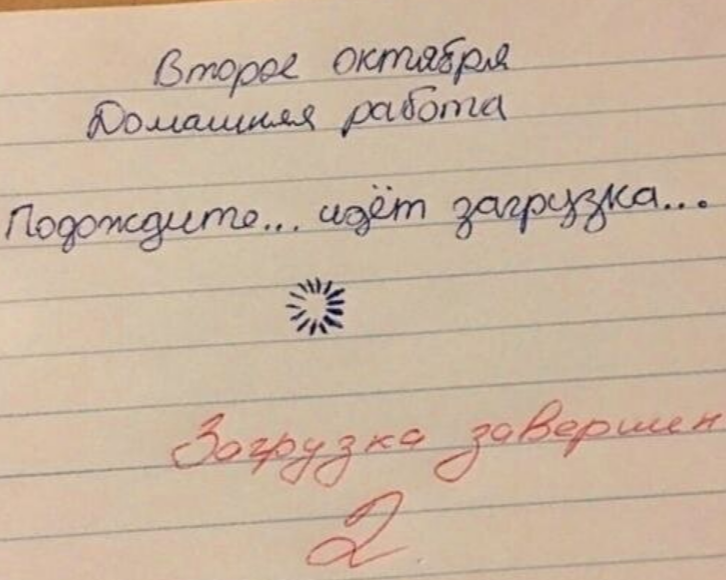 Второе октября
Домашняя работа
Подождите... идёт загрузка...
Загрузка завершен
2